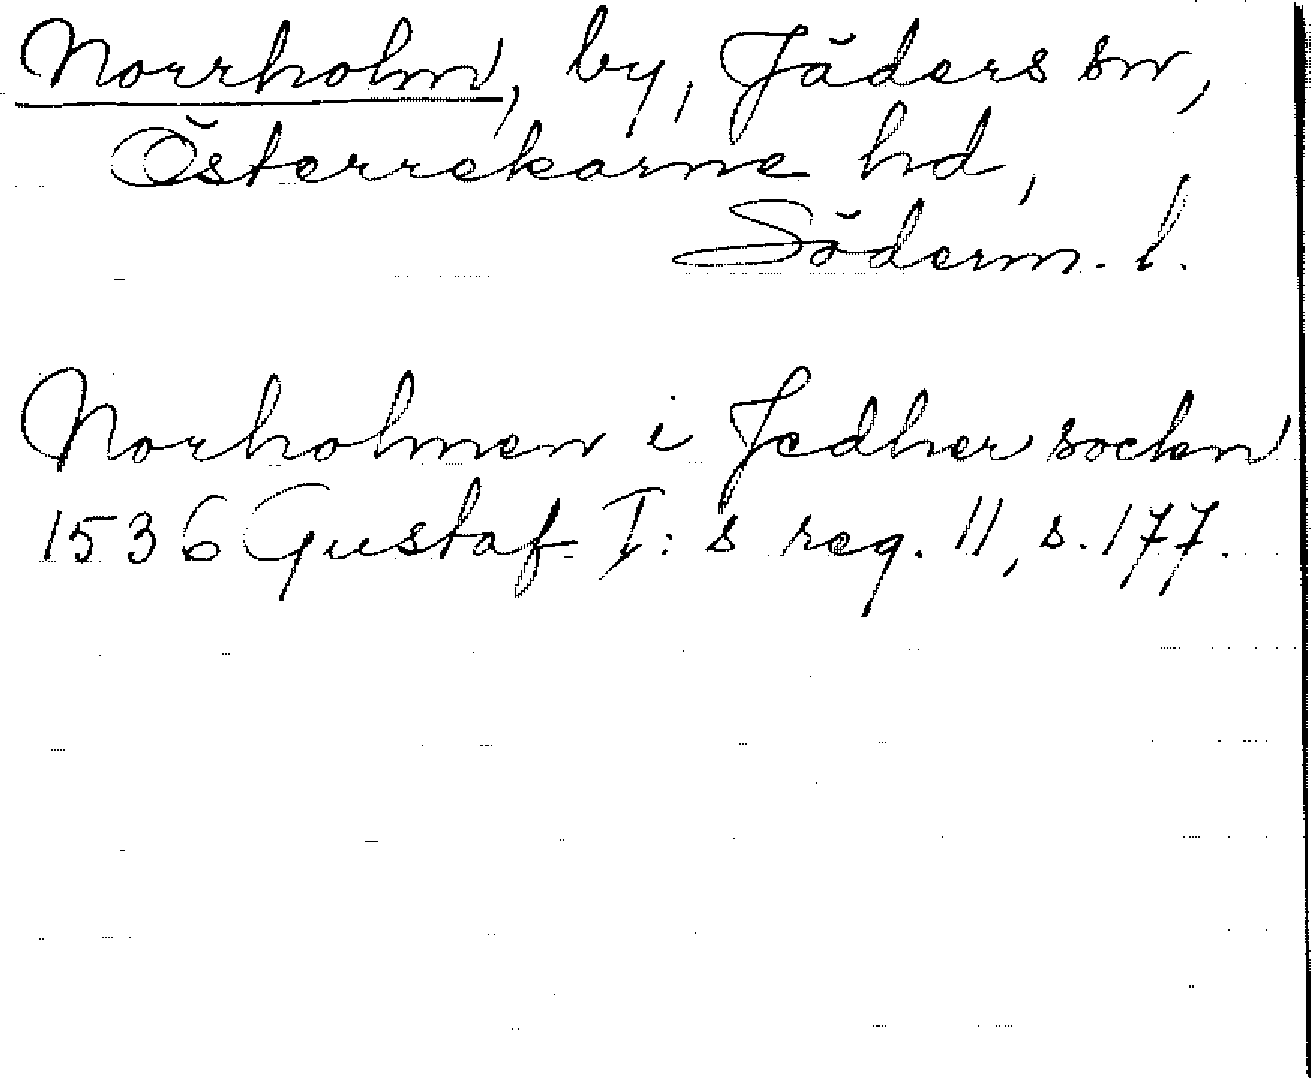 Norrholm, by, Jäders sn,
Österrekarne hd,
Söderm. l.
Norholmen i Jedher sockn
1536 Gustaf I:s reg. 11, s. 177.